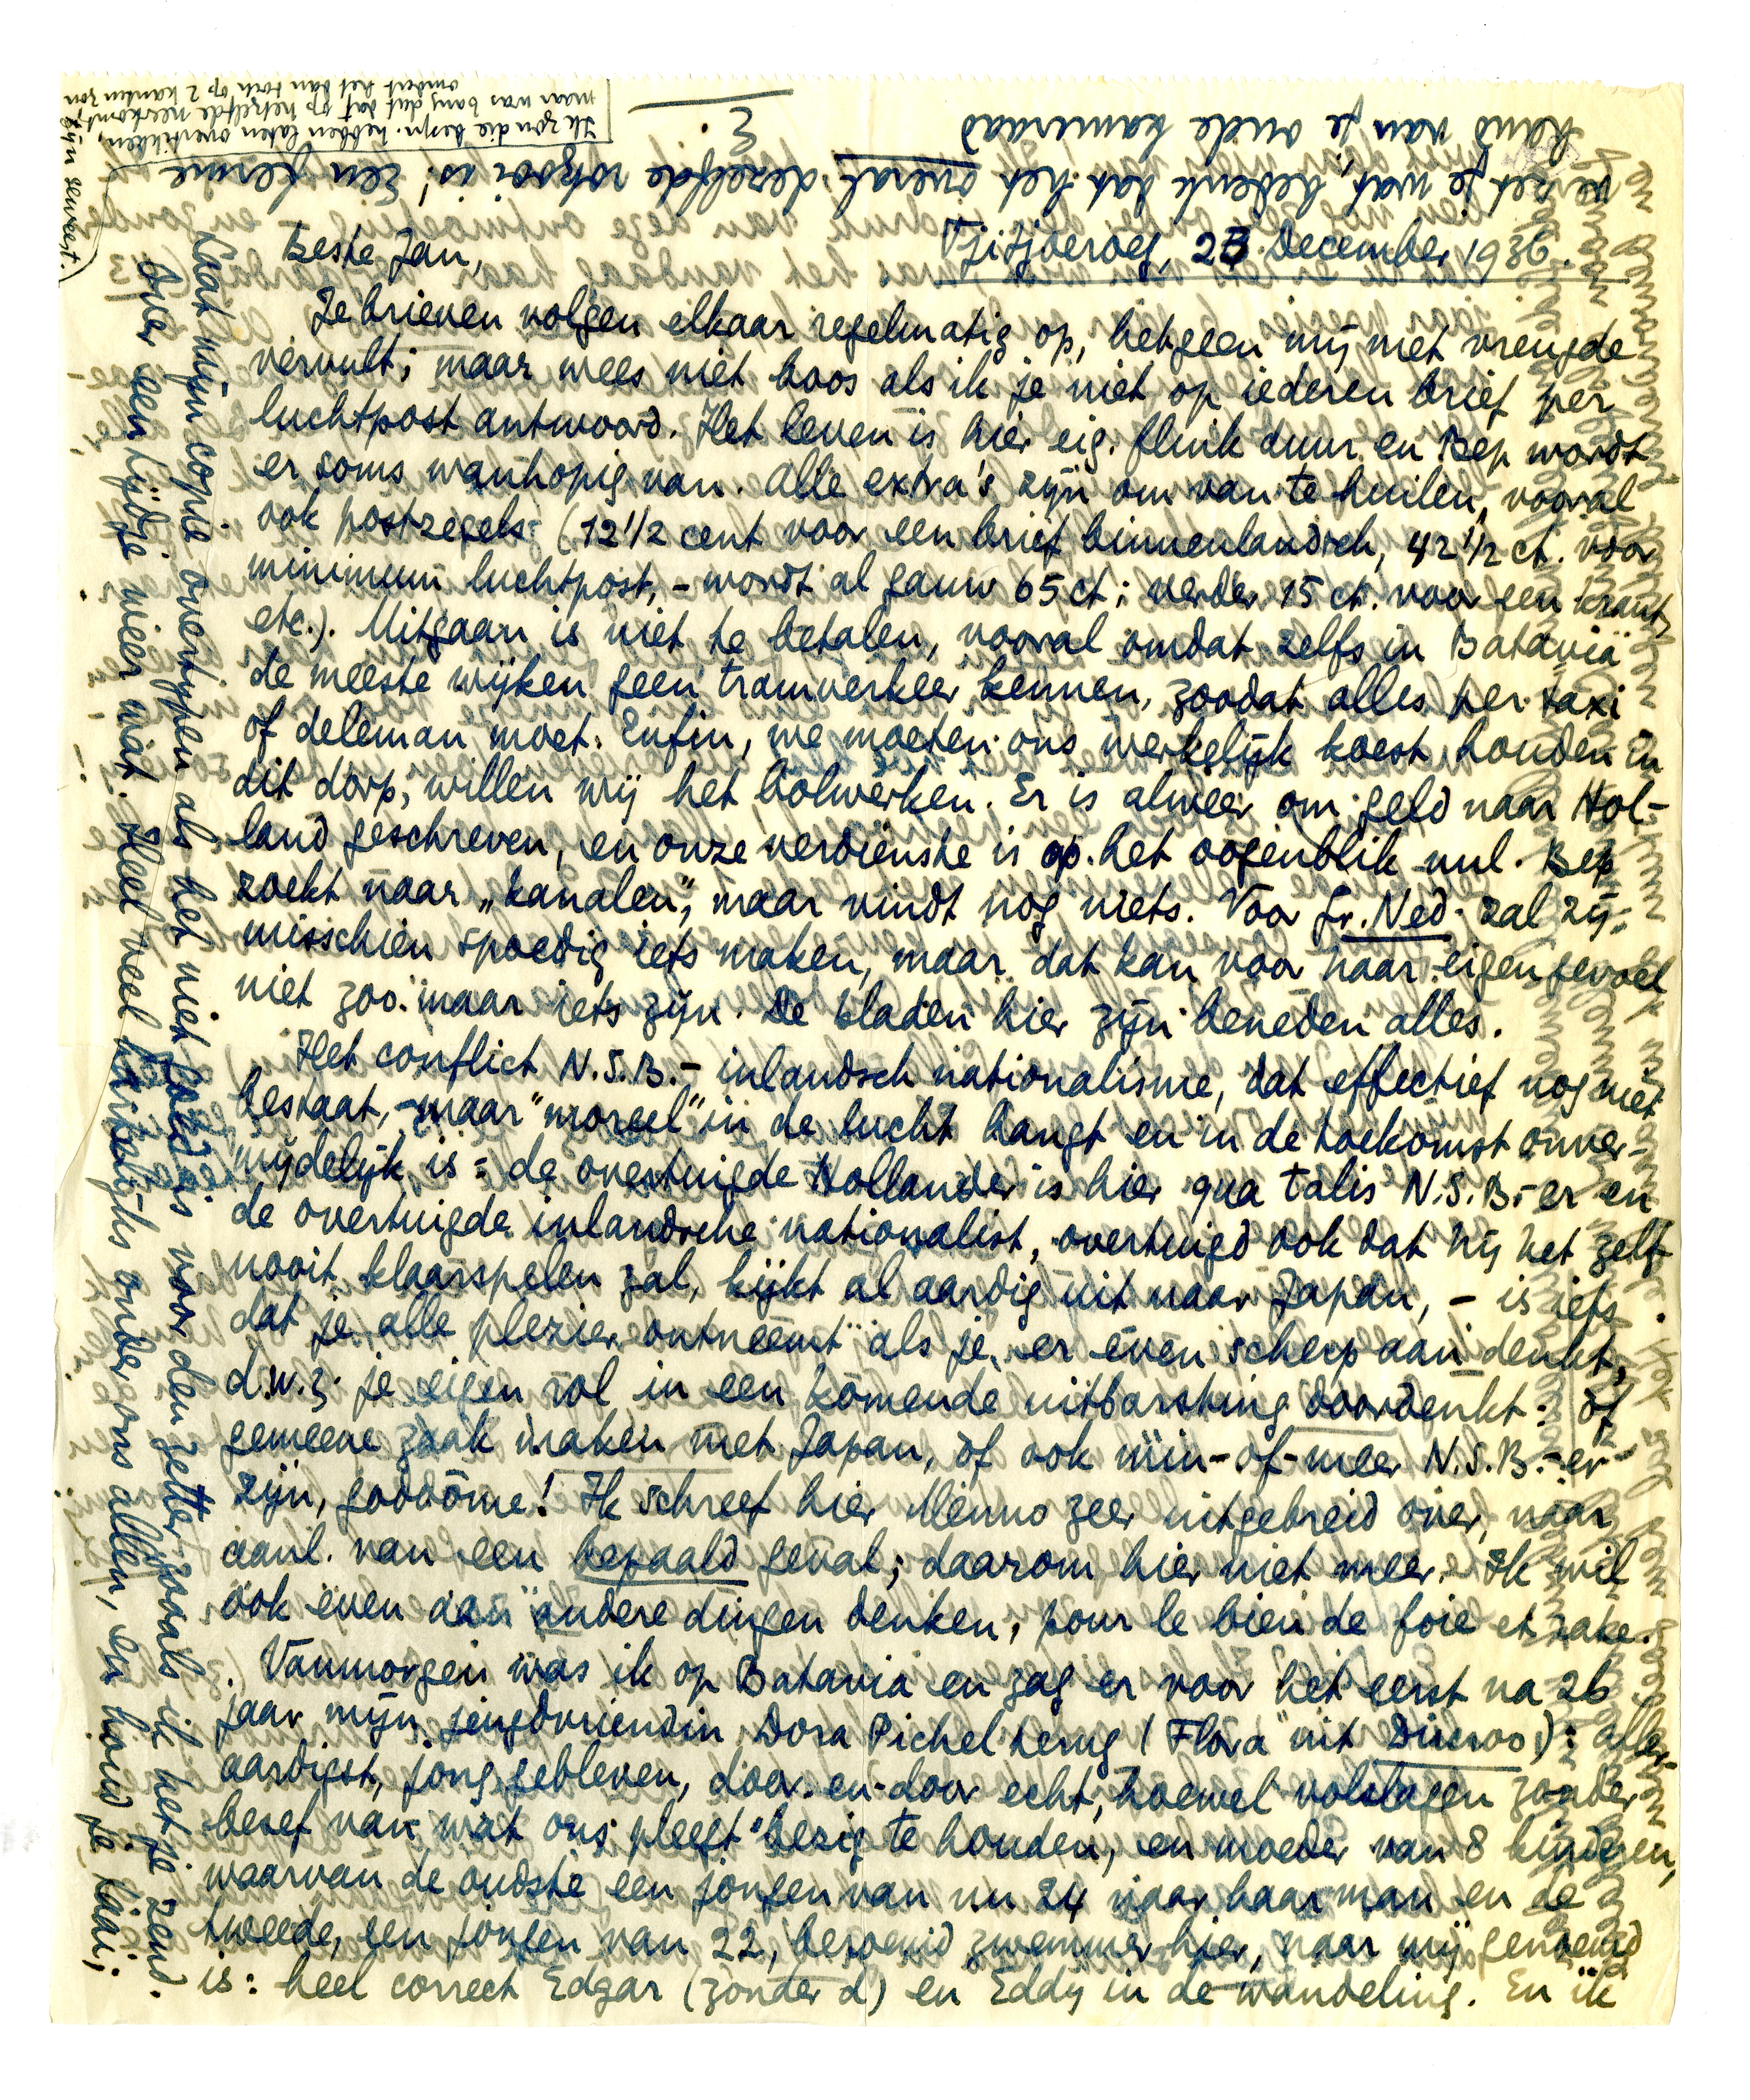 Tjitjoeroeg, 23 December 1936.
Beste Jan,
Je brieven volgen elkaar regelmatig op, hetgeen mij met vreugde
vervult; maar wees niet boos als ik je niet op iederen brief per
luchtpost antwoord. Het leven is hier eig. flink duur en Bep wordt
er soms wanhopig van. Alle extra's zijn om van te huilen, vooral
ook postzegels (12 1/2 cent voor een brief binnenlandsch, 42 1/2 ct. voor
minimum luchtpost, - wordt al gauw 65 ct; verder 15 ct. voor een krant,
etc.). Uitgaan is niet te betalen, vooral omdat zelfs in Batavia
de meeste wijken geen tramverkeer kennen, zoodat alles per taxi
of deleman moet. Enfin, we moeten ons werkelijk koest houden in
dit dorp, willen wij het bolwerken. Er is alweer om geld naar Hol-
land geschreven, en onze verdienste is op het oogenblik nul. Bep
zoekt naar „kanalen", maar vindt nog niets. Voor Gr. Ned. zal zij
misschien spoedig iets maken, maar dat kan voor haar eigen gevoel
niet zoo maar iets zijn. De bladen hier zijn beneden alles.
Het conflict N.S.B. - inlandsch nationalisme, dat effectief nog niet
bestaat, maar "moreel" in de lucht hangt en in de toekomst onver-
mijdelijk is: de overtuigde Hollander is hier qua talis N.S.B.-er en
de overtuigde inlandsche nationalist, overtuigd ook dat hij het zelf
nooit klaarspelen zal, kijkt al aardig uit naar Japan, - is iets
dat je alle plezier ontneemt als je er even scherp aan denkt,
d.w.z. je eigen rol in een komende uitbarsting doordenkt: òf
gemeene zaak maken met Japan, òf ook min-of-meer N.S.B.-er
zijn, goddome! Ik schreef hier Menno zeer uitgebreid over, naar
aanl. van een bepaald geval; daarom hier niet meer. Ik wil
ook even aan andere dingen denken, pour le bien de foie et rate.
Vanmorgen was ik op Batavia en zag er voor het eerst na 26
jaar mijn jeugdvriendin Dora Pichel terug (Flora uit Ducroo): aller-
aardigst, jong gebleven, door-en-door echt, hoewel volslagen zonder
besef van wat ons pleegt bezig te houden, en moeder van 8 kinderen,
waarvan de oudste een jongen van nu 24 naar haar man en de
tweede, een jongen van 22, beroemd zwemmer hier, naar mij genoemd
is: heel correct Edgar (zonder d) en Eddy in de wandeling. En ik
Laat mijn copie overtypen als het niet goed is voor den zetter zooals ik het je zend.
over een tijdje weer wat. Heel veel hartelijks onder ons allen, en houd je taai;
verzet je wat, bedenk dat het overal dezelfde rotzooi is! Een ferme
hand van je oude kameraad
E.
Ik zou die bespr. hebben laten overtikken,
maar was bang dat dat op hetzelfde neerkomt,
omdat het dan toch op 2 kanten zou
zijn geweest.